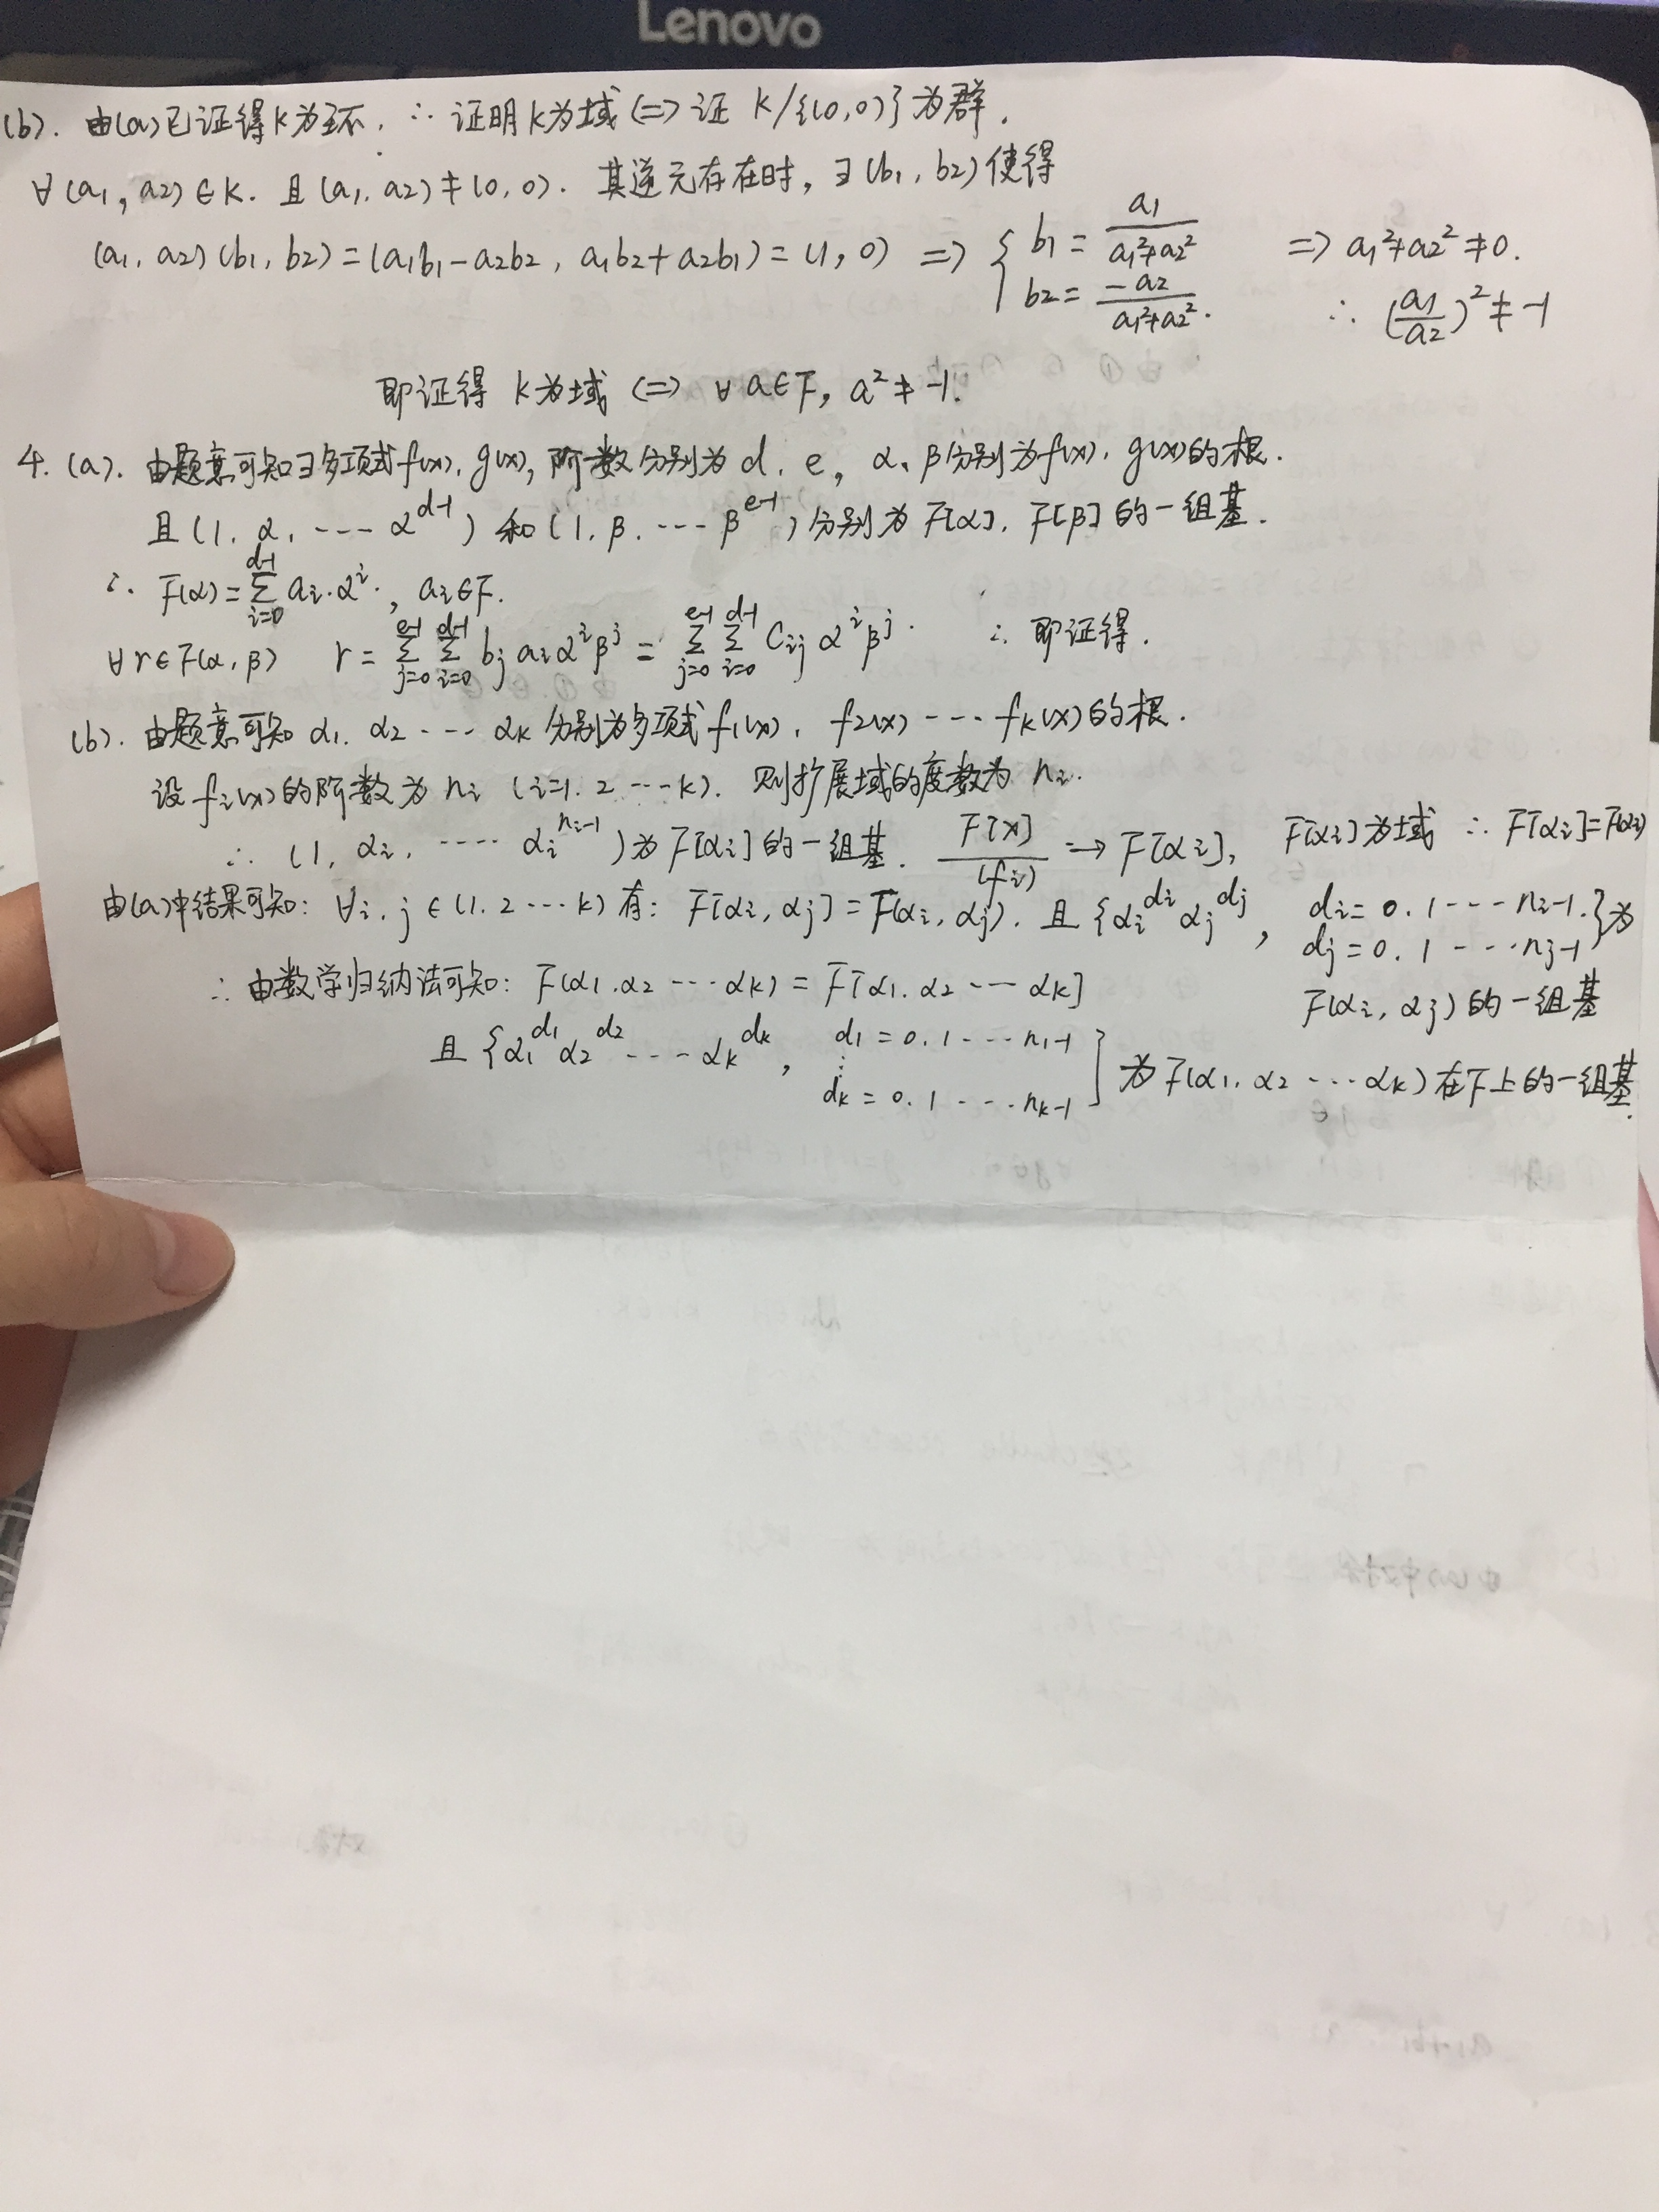 Lenovo
(b). 由(a)已证得K为环. ∴ 证明K为域 (=) 证 K/{(0,0)}为群.
∀(a1, a2)∈K. 且(a1, a2)≠(0, 0). 其逆元存在时, ∃(b1, b2)使得
(a1, a2)(b1, b2)=(a1b1-a2b2, a1b2+a2b1)=(1, 0) => { b1 = a1/(a1²+a2²) => a1²+a2²≠0.
b2 = -a2/(a1²+a2²). ∴ (a1/a2)²≠-1
即证得 K为域 (=) ∀a∈F, a²≠-1.
4. (a). 由题意可知∃多项式f(x), g(x), 阶数分别为 d, e, α、β分别为f(x), g(x)的根.
且(1, α, ---- α^{d-1}) 和 (1, β, --- β^{e-1})分别为 F[α], F[β]的一组基.
∴ F(α)=Σ_{i=0}^{d-1} ai·α^i, ai∈F.
∀r∈F(α, β) r = Σ_{j=0}^{e-1} Σ_{i=0}^{d-1} bj ai α^i β^j = Σ_{j=0}^{e-1} Σ_{i=0}^{d-1} Cij α^i β^j. ∴ 即证得.
(b). 由题意可知 α1, α2 --- αk 分别为多项式 f1(x), f2(x) --- fk(x)的根.
设 fi(x)的阶数为 ni (i=1, 2 ---k). 则扩展域的度数为 ni.
∴ (1, αi, ---- αi^{ni-1})为F[αi]的一组基. F[x]/(fi) → F[αi], F[αi]为域 ∴ F[αi]=F(αi)
由(a)中结果可知: ∀i, j∈(1, 2 ---k) 有: F[αi, αj]=F(αi, αj). 且{αi^{di} αj^{dj}, di=0, 1 --- ni-1, dj=0, 1 --- nj-1}为
F(αi, αj)的一组基
∴ 由数学归纳法可知: F(α1, α2 --- αk) = F[α1, α2 --- αk]
且{α1^{d1} α2^{d2} ---- αk^{dk}, d1=0, 1 --- n1-1 ⋮ dk=0, 1 --- nk-1} 为F(α1, α2 --- αk)在F上的一组基.